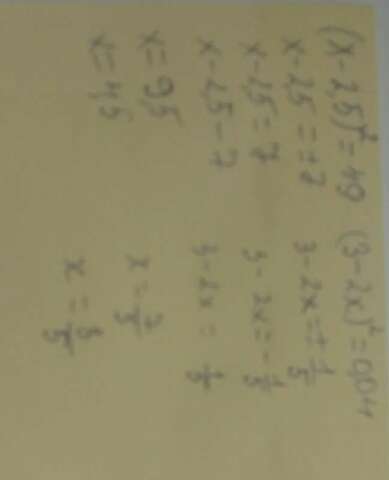 (x-2,5)²=49
x-2,5=±7
x-2,5=7
x-2,5-7
x=9,5
x=4,5
(3-2x)²=0,04
3-2x=±1/5
3-2x=-1/5
3-2x=1/5
x=
x=